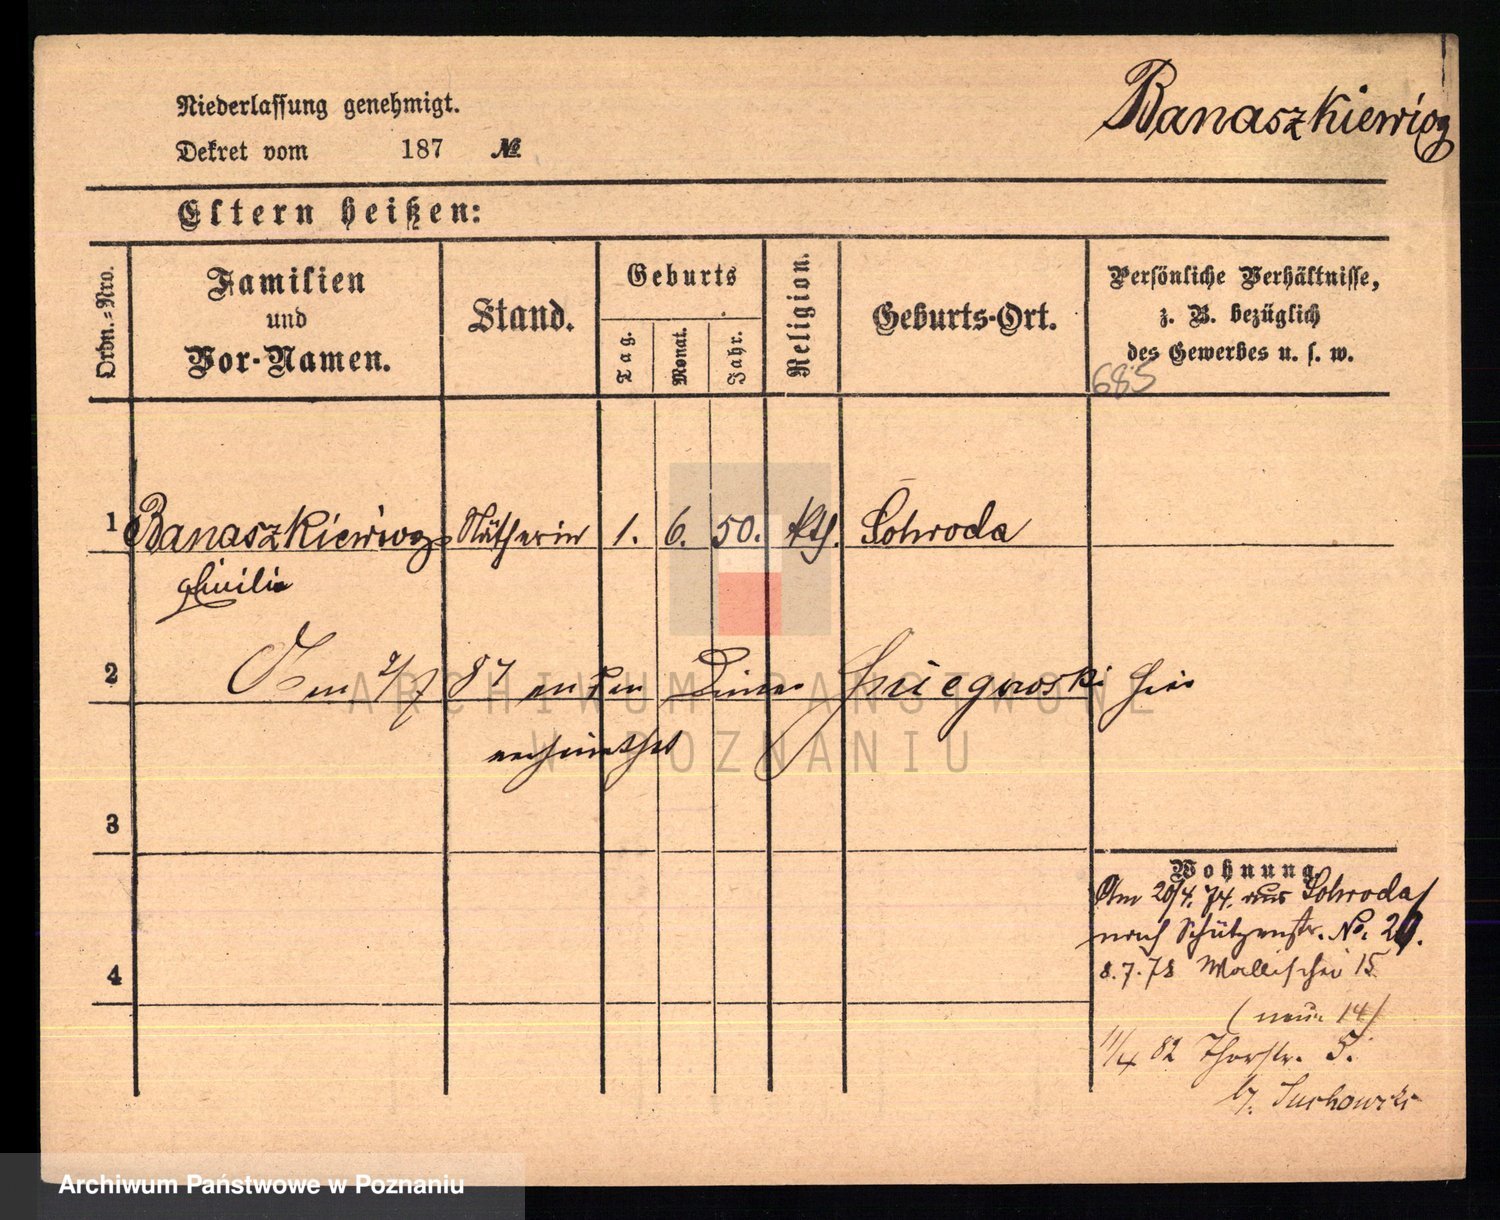 Banaszkiewicz
Niederlassung genehmigt.
Dekret vom 187 №
Eltern heißen:
Ordn.-Nro.
Familien und Vor-Namen.
Stand.
Geburts
Tag.
Monat.
Jahr.
Religion.
Geburts-Ort.
Persönliche Verhältnisse,
z. B. bezüglich
des Gewerbes u. s. w.
685
1 Banaszkiewicz Nätherin 1. 6. 50. kth. Schroda
2 Am 2/7 87 an den Diener hier
verheirathet
3
4
Wohnung
Am 20/4. 74. aus Schroda
nach Schützenstr. No. 20.
8.7.78 Wallischei 15
(neue 14)
11/4 82 Thorstr. 5.
b/. Suchowski
ARCHIWUM PAŃSTWOWE
W POZNANIU
Archiwum Państwowe w Poznaniu